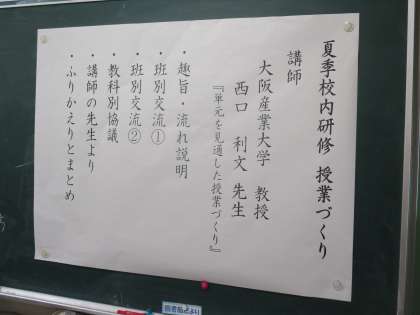 夏季校内研修 授業づくり
講師
大阪産業大学 教授
西口 利文 先生
『単元を見通した授業づくり』
・趣旨・流れ説明
・班別交流①
・班別交流②
・教科別協議
・講師の先生より
・ふりかえりとまとめ